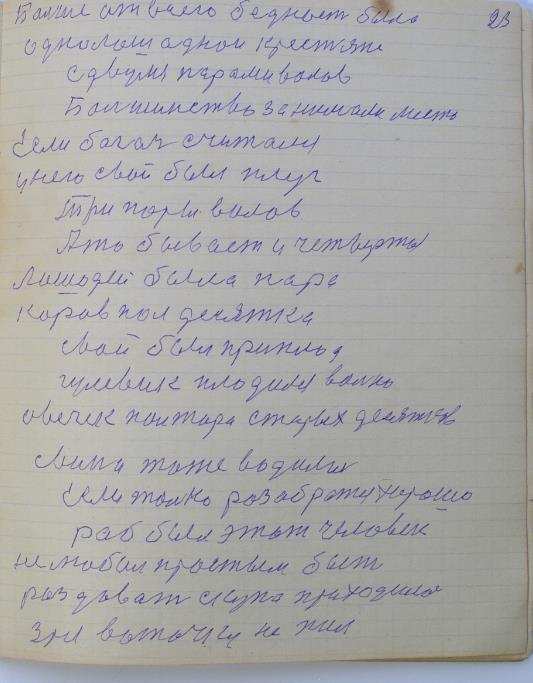 23
Болше от всего бедност была
однолошадной крестяне
сдвумя парами волов
Болшинство занимали места
Если богач считался
унего свой был плуг
Три пары волов
Ато бывает и четверта
Лошодей была пара
коров пол десятка
свой был приплод
гулевик плодился волно
овечек полтара старых десятков
свиня тоже водились
Если толко розабратся хорошо
раб был этот человек
не любил простым быт
роздават скупа приходилос
Зря не пил